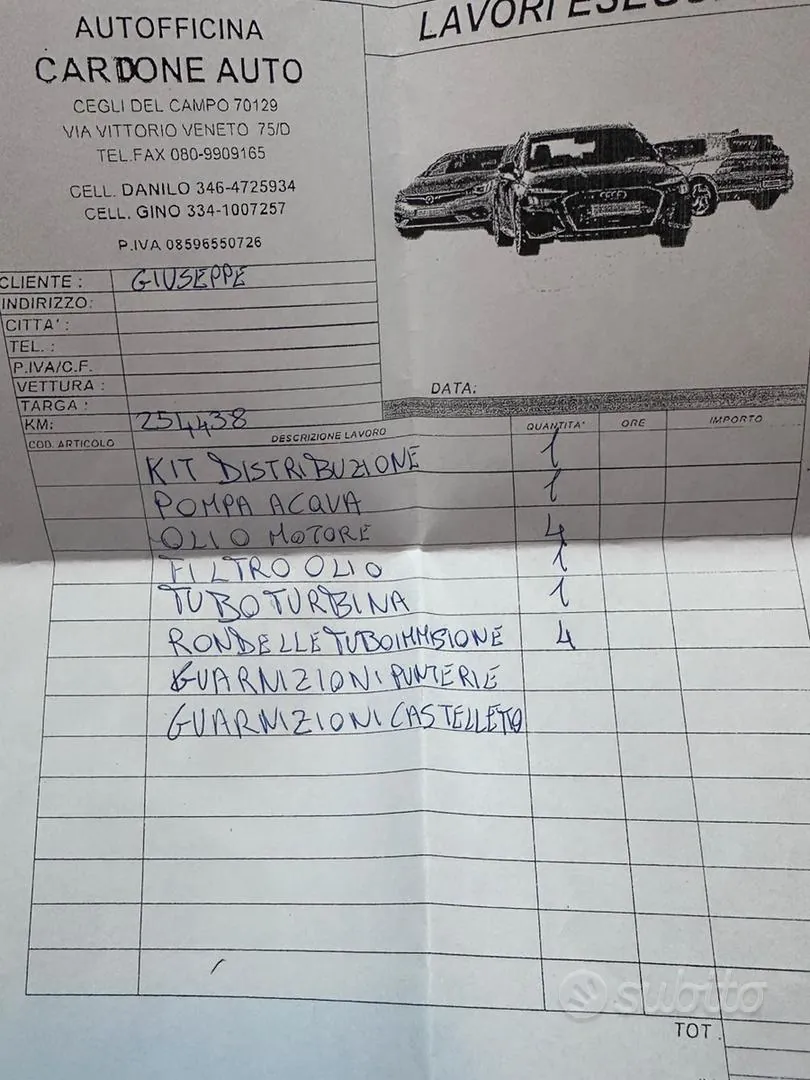 AUTOFFICINA
CARDONE AUTO
CEGLI DEL CAMPO 70129
VIA VITTORIO VENETO 75/D
TEL.FAX 080-9909165
CELL. DANILO 346-4725934
CELL. GINO 334-1007257
P.IVA 08596550726
LAVORI
CLIENTE : GIUSEPPE
INDIRIZZO:
CITTA' :
TEL. :
P.IVA/C.F.
VETTURA :
TARGA :
KM: 254438
DATA:
COD. ARTICOLO DESCRIZIONE LAVORO QUANTITA' ORE IMPORTO
KIT DISTRIBUZIONE 1
POMPA ACQUA 1
OLIO MOTORE 4
FILTRO OLIO 1
TUBO TURBINA 1
RONDELLE TUBO IMMISIONE 4
GUARNIZIONI PUNTERIE
GUARNIZIONI CASTELLETO
subito
TOT.